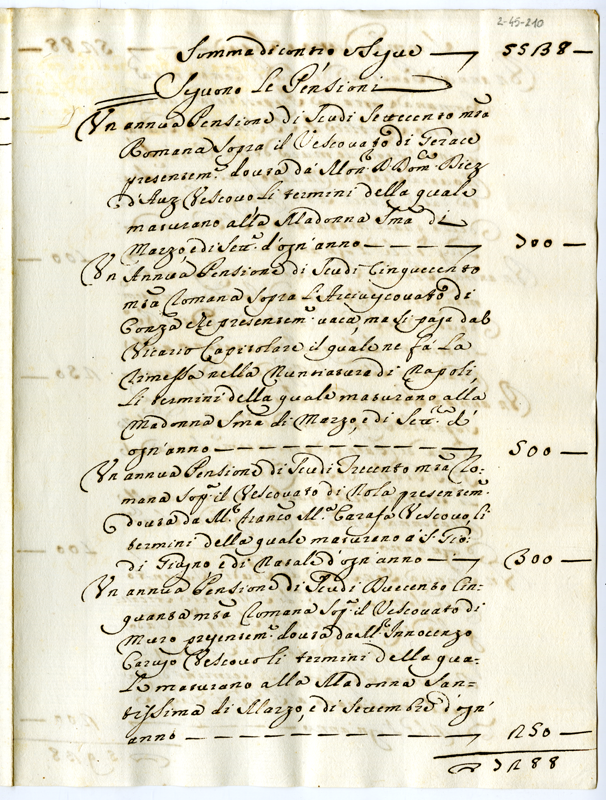 2-45-210
Somma di contro e segue — 5538 —
Seguono Le Pensioni
Un annua Pensione di Scudi Settecento mta
Romana Sopra il Vescovato di Gerace
presentem.e dovuta da Mon.r D. Dom.o Diez
d'Auz Vescovo Li termini della quale
maturano alla Madonna Sma di
Marzo, e di Sett.e d'ogn'anno — — — — 700 —
Un Annua Pensione di Scudi Cinquecento
mta Romana sopra L'Arcivescovato di
Conza che presentem.e vaca, ma si paja dal
Vicario Capitolare il quale ne fà La
rimessa nella Nunziatura di Napoli,
Li termini della quale maturano alla
Madonna Sma di Marzo, e di Sett.e d'
ogn'anno — — — — — — — — 500 —
Un annua Pensione di Scudi Trecento mta Ro:
mana Sop.a il Vescovato di Nola presentem.e
dovuta da M.r Franco M.a Carafa Vescovo, li
termini della quale maturano a S. Gio:
di Giugno e di Natale d'ogn'anno — — 300 —
Un annua Pensione di Scudi Duecento Cin:
quanta mta Romana Sop.a il Vescovato di
Muro presentem.e dovuta da M.r Innocenzo
Carujo Vescovo Li termini della qua:
Le maturano alla Madonna San:
tissima di Marzo, e di Settembre d'ogn'
anno — — — — — — — — — 250 —
7288